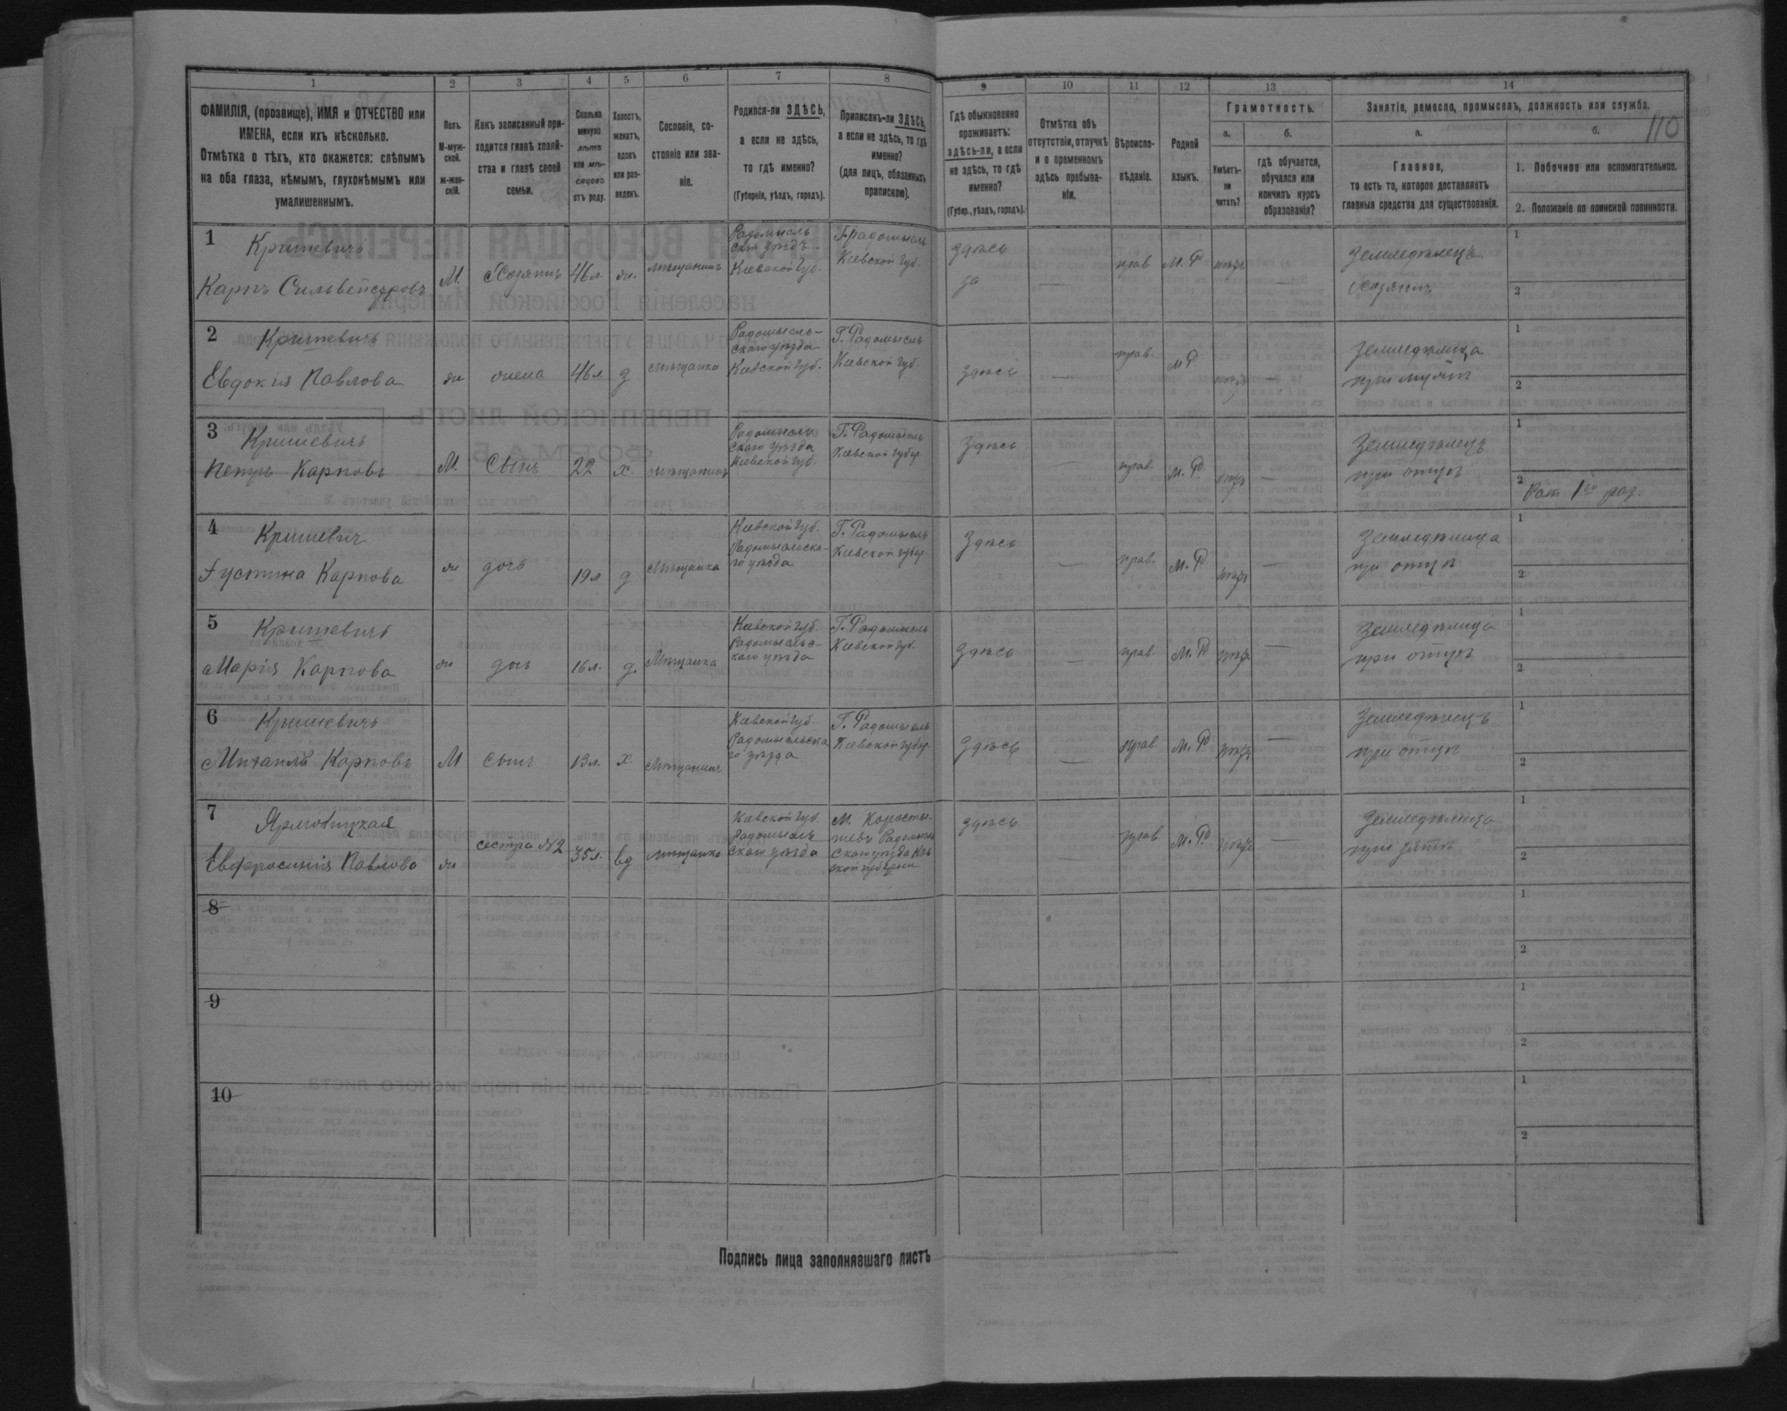 1 2 3 4 5 6 7 8 9 10 11 12 13 14
110
ФАМИЛІЯ, (прозвище), ИМЯ и ОТЧЕСТВО или
ИМЕНА, если ихъ нѣсколько.
Отмѣтка о тѣхъ, кто окажется: слѣпымъ
на оба глаза, нѣмымъ, глухонѣмымъ или
умалишеннымъ.
Полъ.
М-муж-
ской.
ж-жен-
скій.
Какъ записанный при-
ходится главѣ хозяй-
ства и главѣ своей
семьи.
Сколько
минуло
лѣтъ
или мѣ-
сяцевъ
отъ роду.
Холостъ,
женатъ,
вдовъ
или раз-
веденъ.
Сословіе, со-
стояніе или зва-
ніе.
Родился-ли ЗДѢСЬ,
а если не здѣсь,
то гдѣ именно?
(Губернія, уѣздъ, городъ).
Приписанъ-ли ЗДѢСЬ,
а если не здѣсь, то гдѣ
именно?
(для лицъ, обязанныхъ
припискою).
Гдѣ обыкновенно
проживаетъ:
здѣсь-ли, а если
не здѣсь, то гдѣ
именно?
(Губер., уѣздъ, городъ).
Отмѣтка объ
отсутствіи, отлучкѣ
и о временномъ
здѣсь пребыва-
ніи.
Вѣроиспо-
вѣданіе.
Родной
языкъ.
Грамотность.
а.
Умѣетъ-
ли
читать?
б.
гдѣ обучается,
обучался или
кончилъ курсъ
образованія?
Занятіе, ремесло, промыселъ, должность или служба.
а.
Главное,
то есть то, которое доставляетъ
главныя средства для существованія.
б.
1. Побочное или вспомогательное.
2. Положеніе по воинской повинности.
1
Кришевичъ
Карпъ Сильвестровъ
М. Хозяинъ 46л жн. мѣщанинъ
Радомысль
скій уѣздъ
Кіевской Губ.
Г. Радомысль
Кіевской Губ.
здѣсь
прав М.Р
Земледѣлецъ
хозяинъ
1
2
2
Кришевичъ
Евдокия Павлова
жн жена 46л мѣщанка
Радомысль-
скаго уѣзда
Кіевской Губ.
Г. Радомысль
Кіевской Губ.
здѣсь
прав. мР
Земледѣлица
при мужѣ
1
2
3
Кришевичъ
Петръ Карповъ
М. Сынъ 22 х. мѣщанинъ
Радомысль
скаго уѣзда
Кіевской Губ.
Г. Радомысль
Кіевской Губер.
Здѣсь
прав. М.Р.
Земледѣлецъ
при отцѣ
1
2 Рат. 1го раз.
4
Кришевичъ
Іустина Карпова
жн дочь 19л д мѣщанка
Кіевской Губ.
Радомысльска-
го уѣзда
Г. Радомысль
Кіевской губер.
Здѣсь
прав. М.Р
Земледѣлица
при отцѣ
1
2
5
Кришевичъ
Марія Карпова
жн дочь 16л. д. Мѣщанка
Кіевской Губ.
Радомысльс-
каго уѣзда
Г. Радомысль
Кіевской Губ.
Здѣсь
прав. М.Р
Земледѣлица
при отцѣ
1
2
6
Кришевичъ
Михаилъ Карповъ
М Сынъ 13л. х Мѣщанинъ
Кіевской Губ.
Радомысльска
го уѣзда
Г. Радомысль
Кіевской губер.
Здѣсь
прав М.Р
Земледѣлецъ
при отцѣ
1
2
7
Евфросинія Павлова
жн сестра №2 35л. вд мѣщанка
Кіевской Губ.
Радомысль
скаго уѣзда
М. Коросты-
шевъ Радомысль
скаго уѣзда Кіев
ской губерніи
здѣсь
прав М.Р.
Земледѣлица
при зятѣ
1
2
8
1
2
9
1
2
10
1
2
Подпись лица заполнявшаго листъ